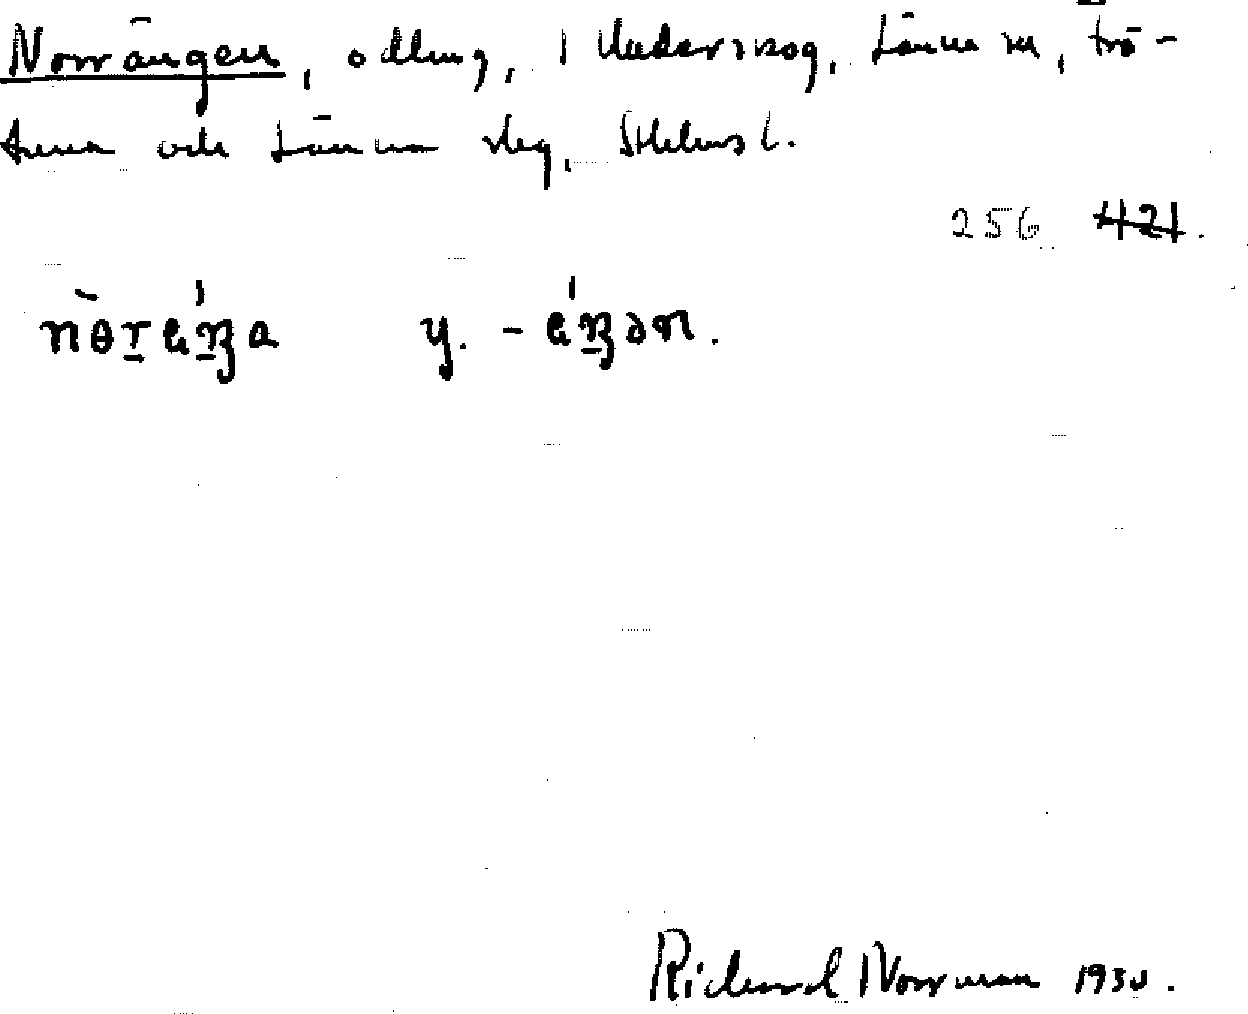 Norrängen, odling, i Underskog, Länna sn, Frö-
tuna och Länna slg, Sthlms l.
256 421.
nò̤rä́ŋa y. -ä́ŋən.
Richard Norrman 1930.